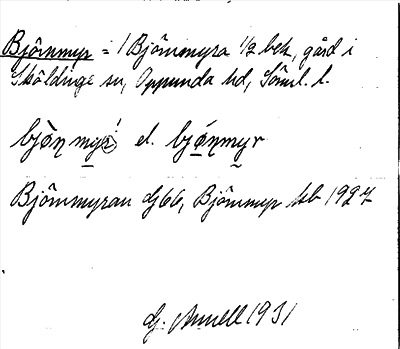 Björnmyr = 1 Björnmyra 1/2 bek, gård i
Sköldinge sn, Oppunda hd, Söml. l.
bjø̀ṇ myr el. bjǿṇmyr
Björnmyran dj66, Björnmyr kb 1927
G. Annell 1931